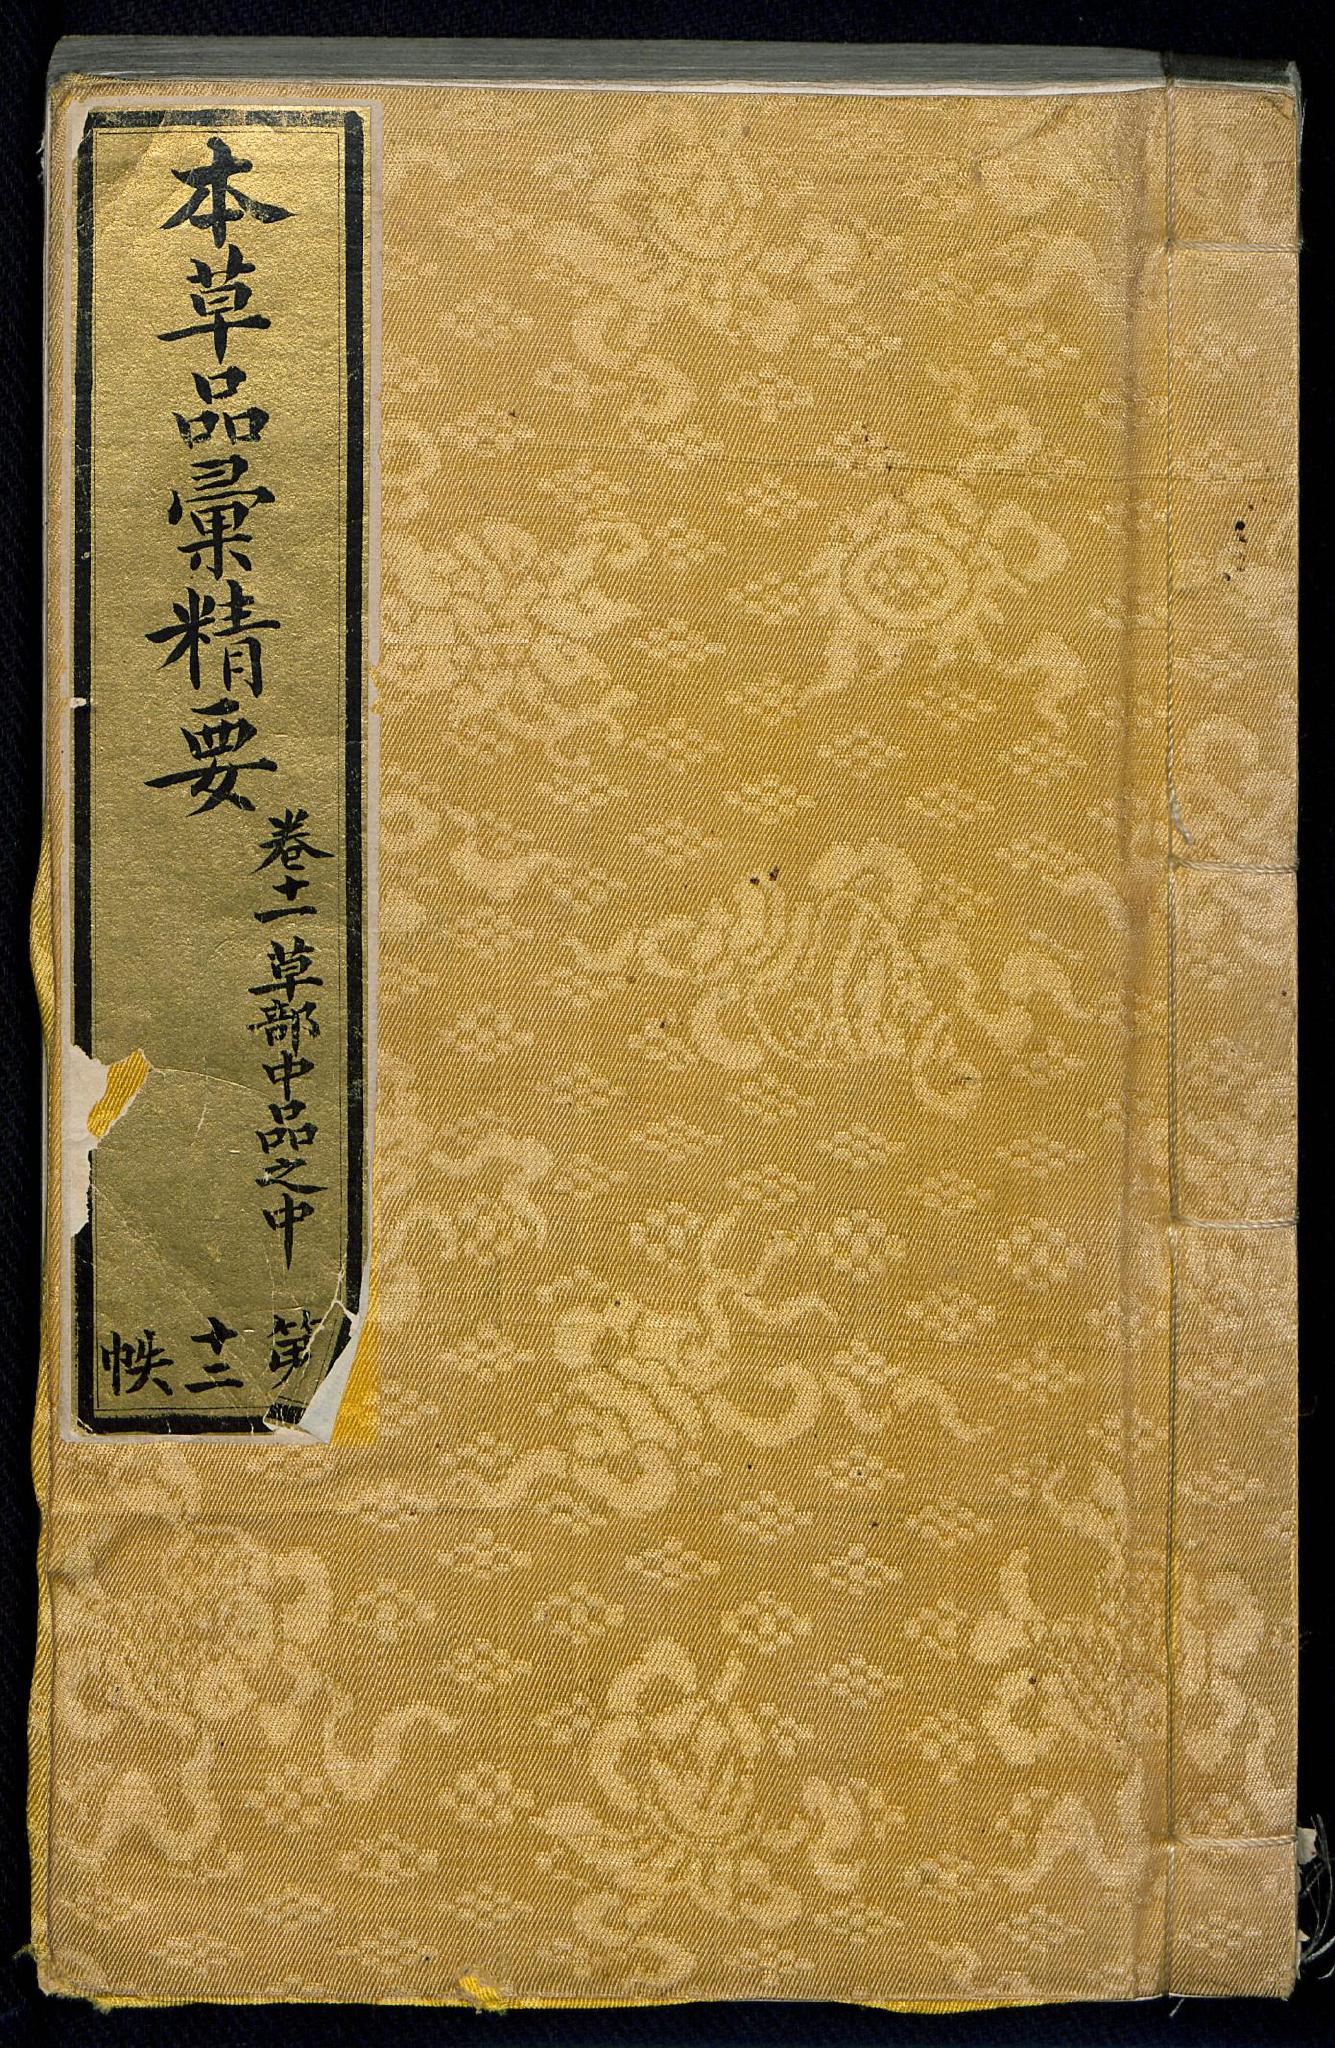 本草品彙精要
卷十一 草部中品之中
第十二帙